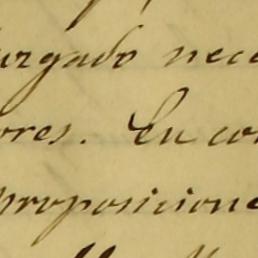 urgado nece
ores. En con
proposicione